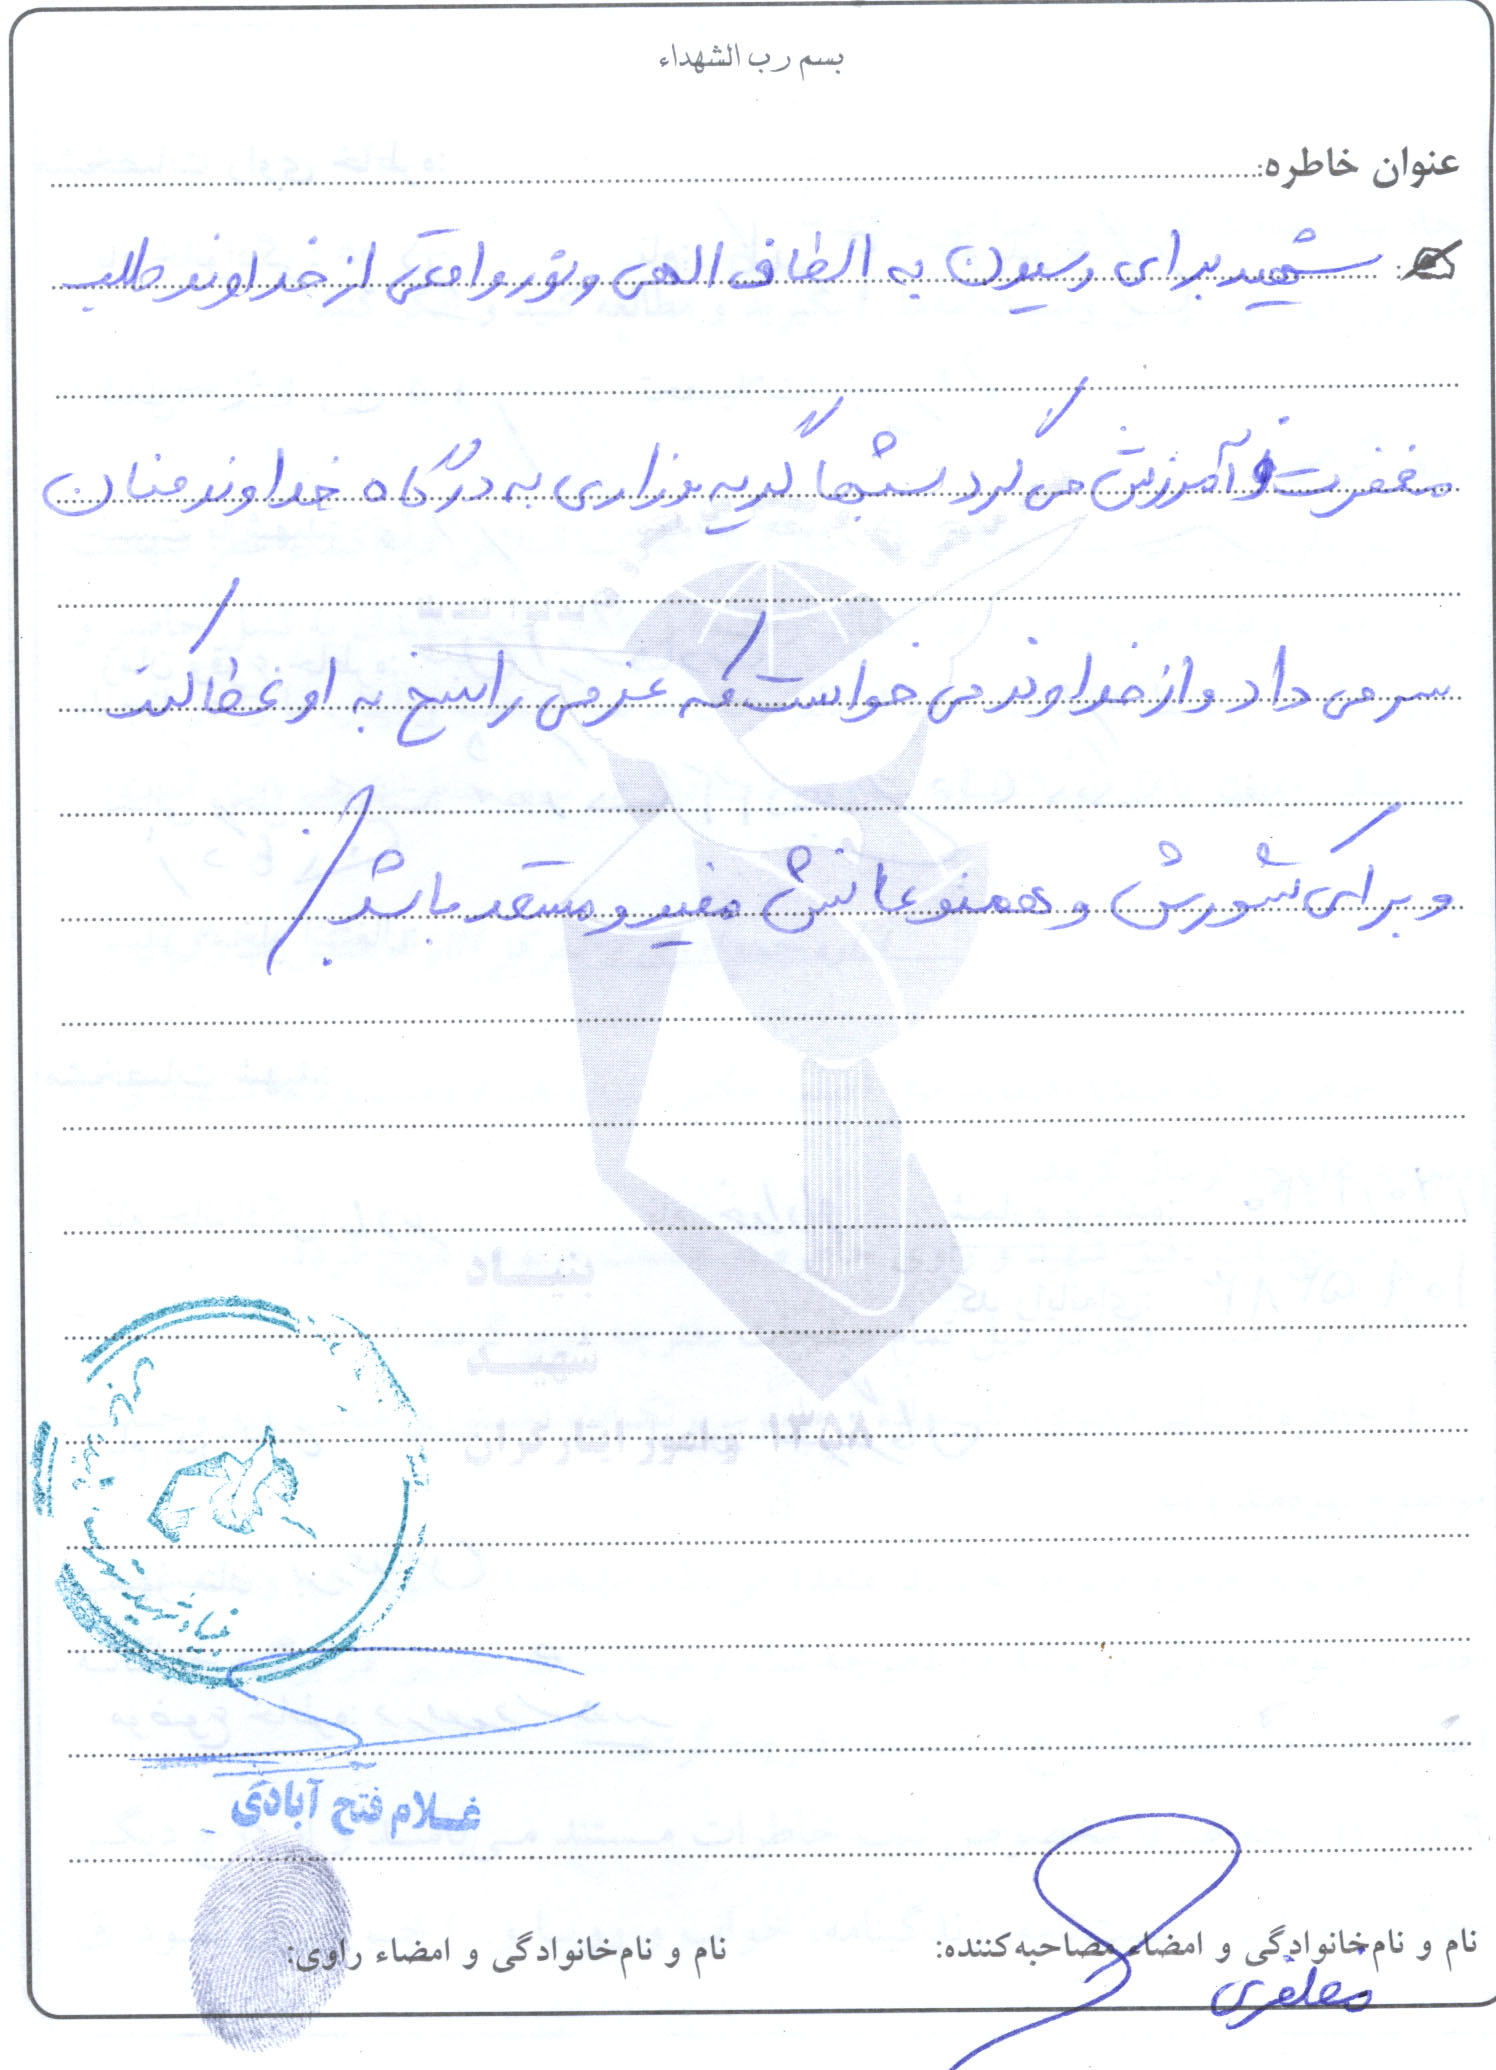 بسم رب الشهداء
عنوان خاطره:
شهید برای رسیدن به الطاف الهی و نور واقعی از خداوند طلب
مغفرت و آمرزش می کرد شبها گریه و زاری به درگاه خداوند منان
سر می داد و از خداوند می خواست که عزمی راسخ به او عطا کند
و برای کشورش و همنوعانش مفید و مستعد باشد
بنیاد
شهید
و امور ایثارگران ۱۳۵۸
بنیاد شهید
غلام فتح آبادی
نام و نام‌خانوادگی و امضاء مصاحبه‌کننده:
نام و نام‌خانوادگی و امضاء راوی:
مظفری